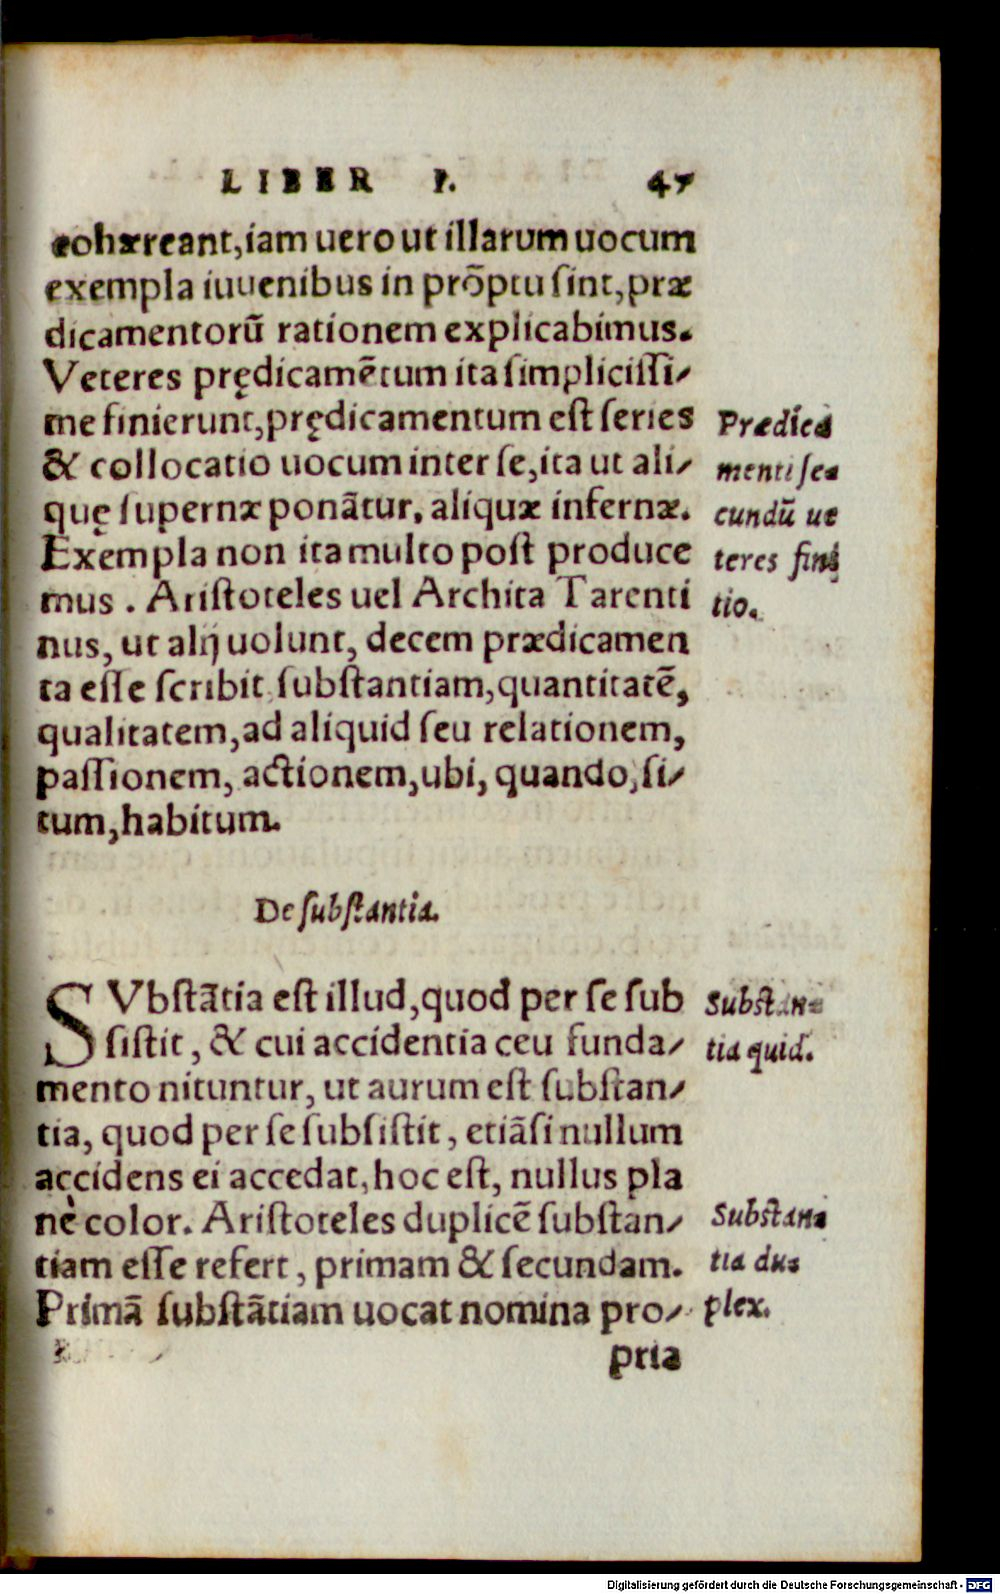 LIBER I. 47
cohærreant, iam uero ut illarum uocum
exempla iuuenibus in prõptu sint, præ
dicamentorũ rationem explicabimus.
Veteres prędicamẽtum ita simplicissi-
me finierunt, prędicamentum est series
& collocatio uocum inter se, ita ut ali-
quę supernæ ponãtur, aliquæ infernæ.
Exempla non ita multo post produce
mus. Aristoteles uel Archita Tarenti
nus, ut alij uolunt, decem prædicamen
ta esse scribit substantiam, quantitatẽ,
qualitatem, ad aliquid seu relationem,
passionem, actionem, ubi, quando, si-
tum, habitum.
Prædica
menti se=
cundũ ue
teres fini
tio.
De substantia.
SVbstãtia est illud, quod per se sub
sistit, & cui accidentia ceu funda-
mento nituntur, ut aurum est substan-
tia, quod per se subsistit, etiãsi nullum
accidens ei accedat, hoc est, nullus pla
nè color. Aristoteles duplicẽ substan-
tiam esse refert, primam & secundam.
Primã substãtiam uocat nomina pro-
pria
Substan=
tia quid.
Substan=
tia du=
plex.
Digitalisierung gefördert durch die Deutsche Forschungsgemeinschaft - DFG